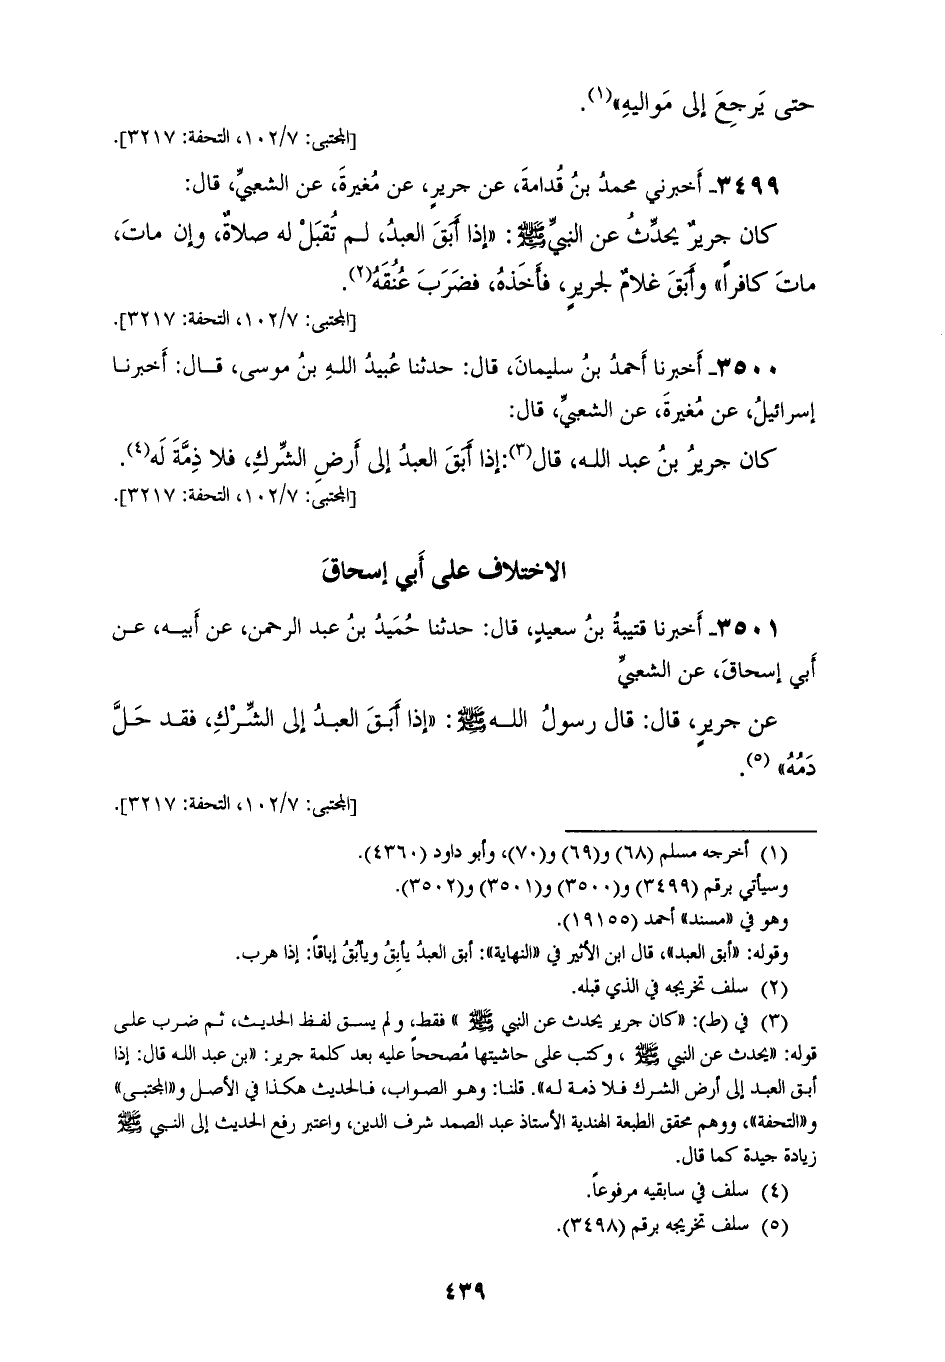 حتى يَرجِعَ إلى مَواليهِ»(١).
[المجتبى: ١٠٢/٧، التحفة: ٣٢١٧].
٣٤٩٩ـ أَخبرني محمدُ بنُ قُدامةَ، عن جريرٍ، عن مُغيرةَ، عن الشعبيِّ، قال:
كان جريرٌ يحدِّثُ عن النبيِّ ﷺ: «إذا أَبَقَ العبدُ، لـم تُقبَلْ له صلاةٌ، وإن ماتَ،
ماتَ كافراً» وأَبَقَ غلامٌ لجريرٍ، فأَخذهُ، فضَرَبَ عُنُقَهُ(٢).
[المجتبى: ١٠٢/٧، التحفة: ٣٢١٧].
٣٥٠٠ـ أَخبرنا أَحمدُ بنُ سليمانَ، قال: حدثنا عُبيدُ اللـهِ بنُ موسى، قـال: أَخبرنـا
إسرائيلُ، عن مُغيرةَ، عن الشعبيِّ، قال:
كان جريرُ بنُ عبد اللـه، قال(٣): إذا أَبَقَ العبدُ إلى أَرضِ الشِّركِ، فلا ذِمَّةَ لَه(٤).
[المجتبى: ١٠٢/٧، التحفة: ٣٢١٧].
الاختلاف على أَبي إسحاقَ
٣٥٠١ـ أَخبرنا قتيبةُ بنُ سعيدٍ، قال: حدثنا حُمَيدُ بنُ عبد الرحمن، عن أَبيـه، عـن
أَبي إسحاقَ، عن الشعبيِّ
عن جريرٍ، قال: قال رسولُ اللـه ﷺ: «إذا أَبَـقَ العبـدُ إلى الشِّرْكِ، فقـد حَـلَّ
دَمُهُ» (٥).
[المجتبى: ١٠٢/٧، التحفة: ٣٢١٧].
(١) أخرجه مسلم (٦٨) و(٦٩) و(٧٠)، وأبو داود (٤٣٦٠).
وسيأتي برقم (٣٤٩٩) و(٣٥٠٠) و(٣٥٠١) و(٣٥٠٢).
وهو في «مسند» أحمد (١٩١٥٥).
وقوله: «أبق العبد»، قال ابن الأثير في «النهاية»: أبق العبدُ يأبِقُ ويأبَقُ إباقاً: إذا هرب.
(٢) سلف تخريجه في الذي قبله.
(٣) في (ط): «كان جرير يحدث عن النبي ﷺ» فقط، ولم يسـق لفـظ الحديـث، ثـم ضرب علـى
قوله: «يحدث عن النبي ﷺ، وكتب على حاشيتها مُصححاً عليه بعد كلمة جرير: «بن عبد اللـه قال: إذا
أبـق العبـد إلى أرض الشرك فـلا ذمـة لـه». قلنـا: وهـو الصواب، فـالحديث هكـذا في الأصل و«المجتبـى»
و«التحفة»، ووهم محقق الطبعة الهندية الأستاذ عبد الصمد شرف الدين، واعتبر رفع الحديث إلى النبـي ﷺ
زيادة جيدة كما قال.
(٤) سلف في سابقيه مرفوعاً.
(٥) سلف تخريجه برقم (٣٤٩٨).
٤٣٩